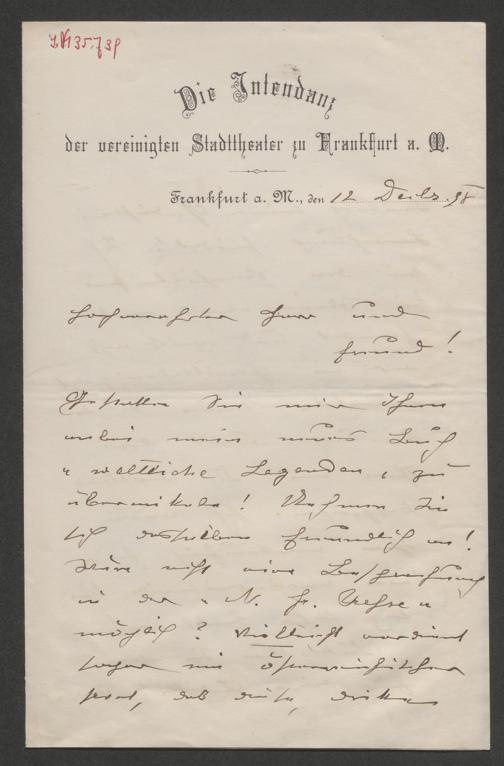 I.N. 135.739
Die Intendanz
der vereinigten Stadttheater zu Frankfurt a. M.
Frankfurt a. M., den 12 Dezb. 98
Hochverehrter Herr und
Freund!
Gestatten Sie mir Ihnen
anbei mein neues Buch
"weltliche Legenden" zu
übermitteln! Nehmen Sie
sich desselben freundlich an!
Wäre nicht eine Besprechung
in der "N. Fr. Presse"
möglich? Vielleicht verdient
sogar ein österreichischer
Poet, daß